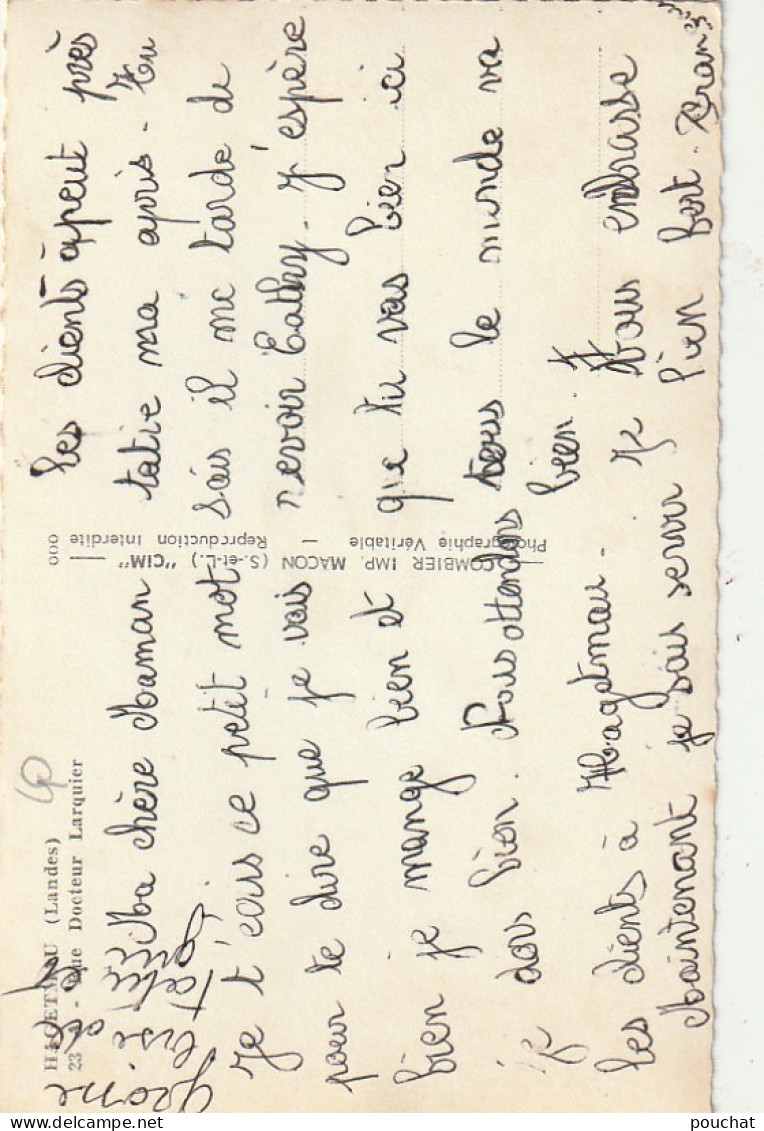 HAGETMAU (Landes)
23 - Rue Docteur Larquier
Ma chère Maman
Je t'écris ce petit mot
pour te dire que je vais
bien je mange bien et
je dors bien. Nous attendons
les clients à Hagetmau.
Maintenant je sais servir
les clients à peut près
tatie ma apris - Tu
sais il me tarde de
revoir Cathy. J'espère
que tu vas bien ici
tous le monde va
bien.
Je vous embrasse
bien fort.
COMBIER IMP. MACON (S.-et-L.) "CIM"
Photographie Véritable - Reproduction Interdite
000
pouchat